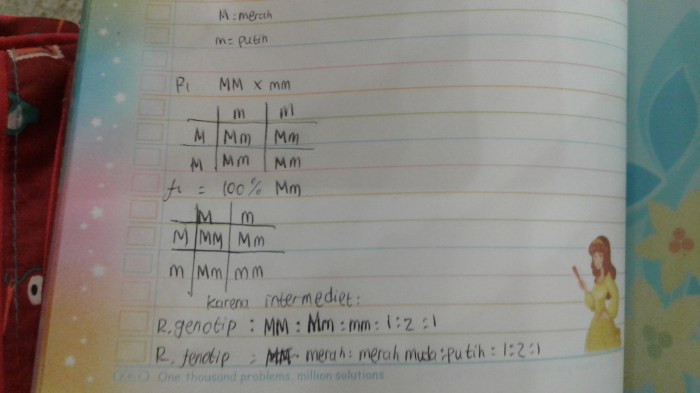 M = merah
m = putih
P1 MM x mm
m m
M Mm Mm
M Mm Mm
f1 = 100% Mm
M m
M MM Mm
m Mm mm
karena intermediet :
R. genotip : MM : Mm : mm : 1 : 2 : 1
R. fenotip : merah : merah muda : putih : 1 : 2 : 1
One thousand problems, million solutions